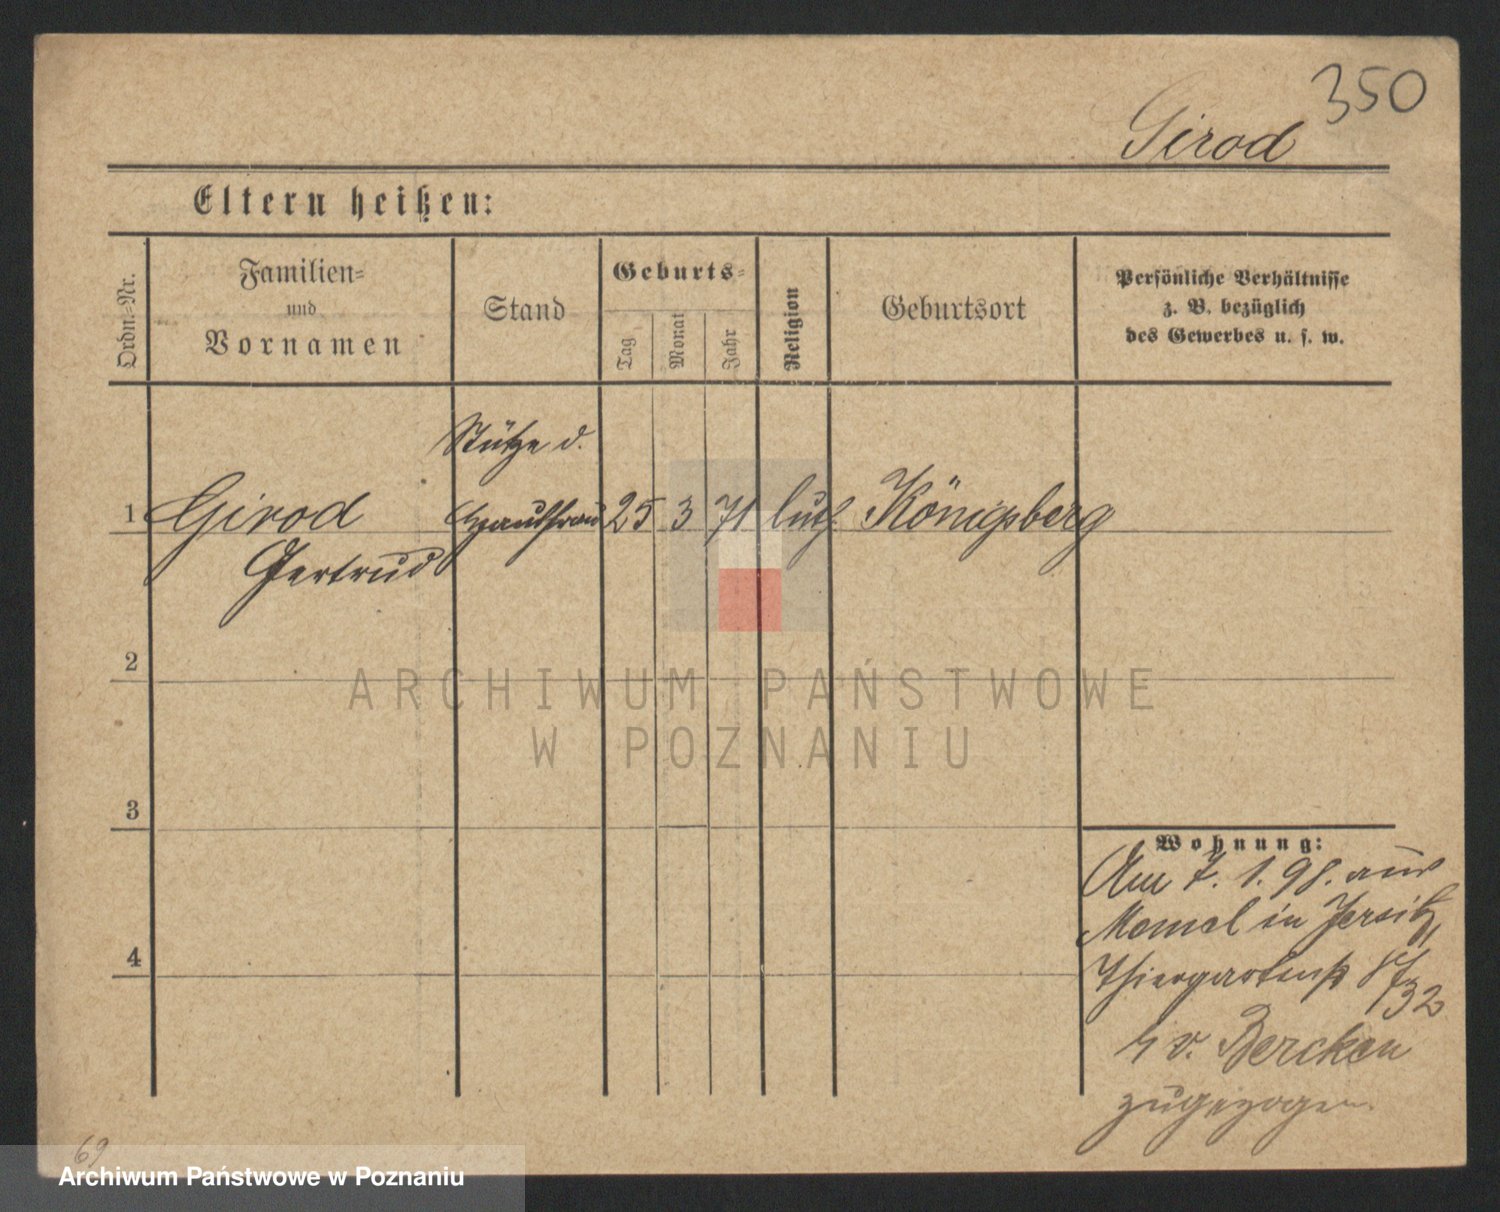 350
Girod
Eltern heißen:
Ordn.-Nr.
Familien-
und
Vornamen
Stand
Geburts-
Tag
Monat
Jahr
Religion
Geburtsort
Persönliche Verhältnisse
z. B. bezüglich
des Gewerbes u. s. w.
Stütze d.
1 Girod Hausfrau 25 3 71 luth. Königsberg
Gertrud
2
ARCHIWUM PAŃSTWOWE
W POZNANIU
3
Wohnung:
Am 7. 1. 98. aus
Memel in Jersitz,
4
Thiergartenstr
32
v. Bercken
zugezogen.
69
Archiwum Państwowe w Poznaniu